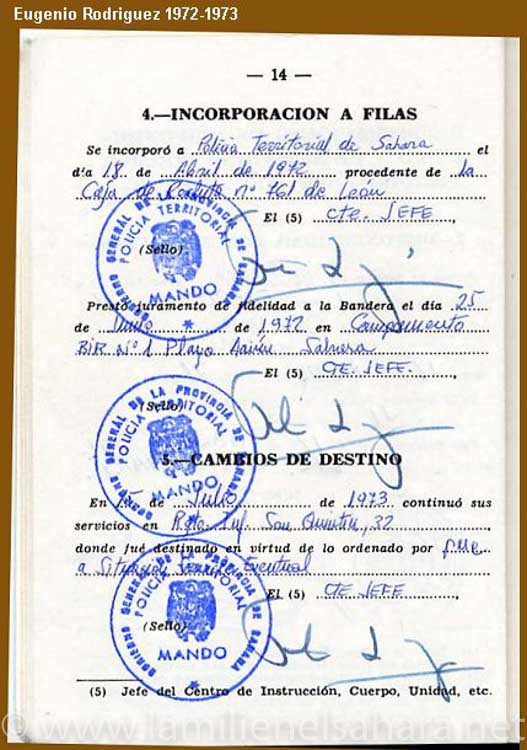 Eugenio Rodriguez 1972-1973
— 14 —
4.—INCORPORACION A FILAS
Se incorporó a Policia Territorial de Sahara el
día 18 de Abril de 1972 procedente de la
Caja de Recluta nº 761 de León
El (5) Cte. JEFE,
(Sello)
GOBIERNO GENERAL DE LA PROVINCIA DE SAHARA
POLICIA TERRITORIAL
MANDO
Prestó juramento de fidelidad a la Bandera el día 25
de Junio de 1972 en Campamento
BIR Nº 1 Playa Sahara
El (5) CTE. JEFE.,
(Sello)
GOBIERNO GENERAL DE LA PROVINCIA DE SAHARA
POLICIA TERRITORIAL
MANDO
5.—CAMBIOS DE DESTINO
En 15 de Julio de 1973 continuó sus
servicios en Rgto. Inf. San Quintin, 32,
donde fué destinado en virtud de lo ordenado por pue
a Situación Servicio Eventual
El (5) CTE JEFE,
(Sello)
GOBIERNO GENERAL DE LA PROVINCIA DE SAHARA
POLICIA TERRITORIAL
MANDO
(5) Jefe del Centro de Instrucción, Cuerpo, Unidad, etc.
© www.lamilienelsahara.net